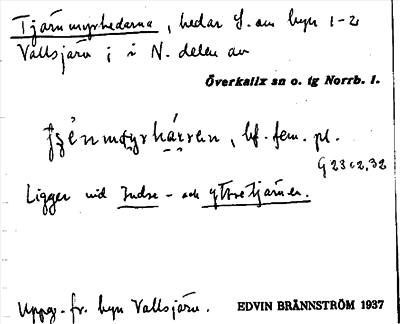 Tjärnmyrhedarna, hedar S. om byn 1-2
Vallsjärv; i N. delen av
Överkalix sn o. tg Norrb. l.
bf. fem. pl.
G 23 c 2,32
Ligger vid Indre- och Yttretjärnen.
Uppg. fr. byn Vallsjärv.
EDVIN BRÄNNSTRÖM 1937